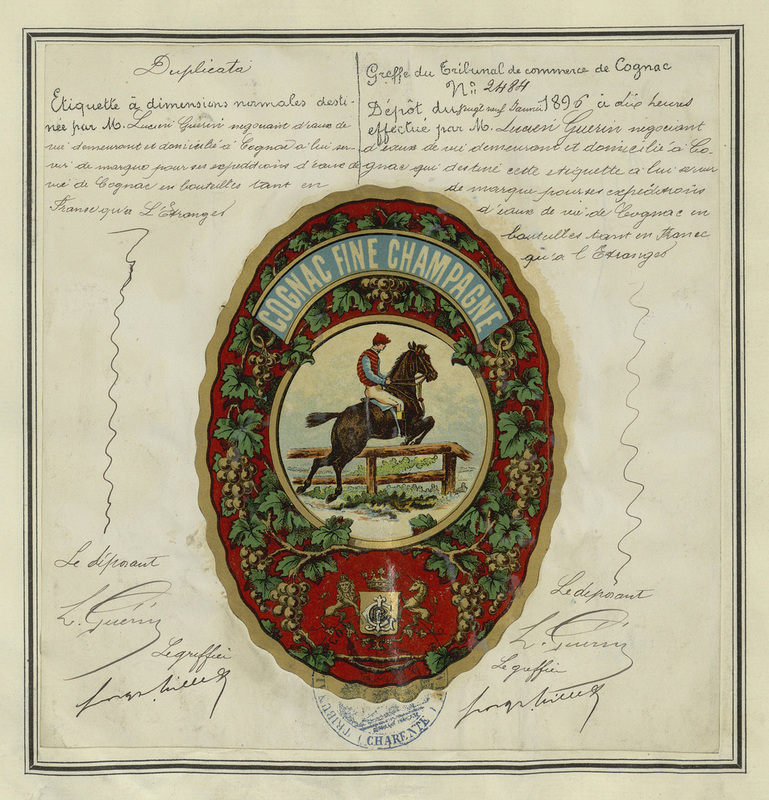 Duplicata
Etiquette à dimensions normales desti-
née par M. Lucien Guérin negociant d'eaux de
vie demeurant et domicilié à Cognac à lui ser-
vir de marque pour ses expéditions d'eaux de
vie de Cognac en bouteilles tant en
France qu'à L'Etranger
Le déposant
L. Guérin
Le greffier
Greffe du Tribunal de commerce de Cognac
No 2484
Dépôt du vingt neuf Janvier 1896 à dix heures
effectué par M. Lucien Guérin negociant
d'eaux de vie demeurant et domicilié à Co-
gnac qui destine cette etiquette à lui servir
de marque pour ses expéditions
d'eaux de vie de Cognac en
bouteilles tant en France
qu'à l'Etranger
Le déposant
L. Guérin
Le greffier
COGNAC FINE CHAMPAGNE
CHARENTE